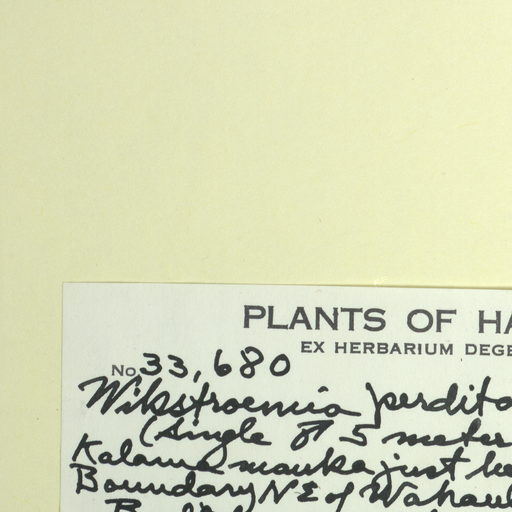 PLANTS OF HA
EX HERBARIUM DEGE
No 33,680
Wikstroemia perdita
(single ♂ 5 meter
Kalama mauka just be
Boundary NE of Wahaul